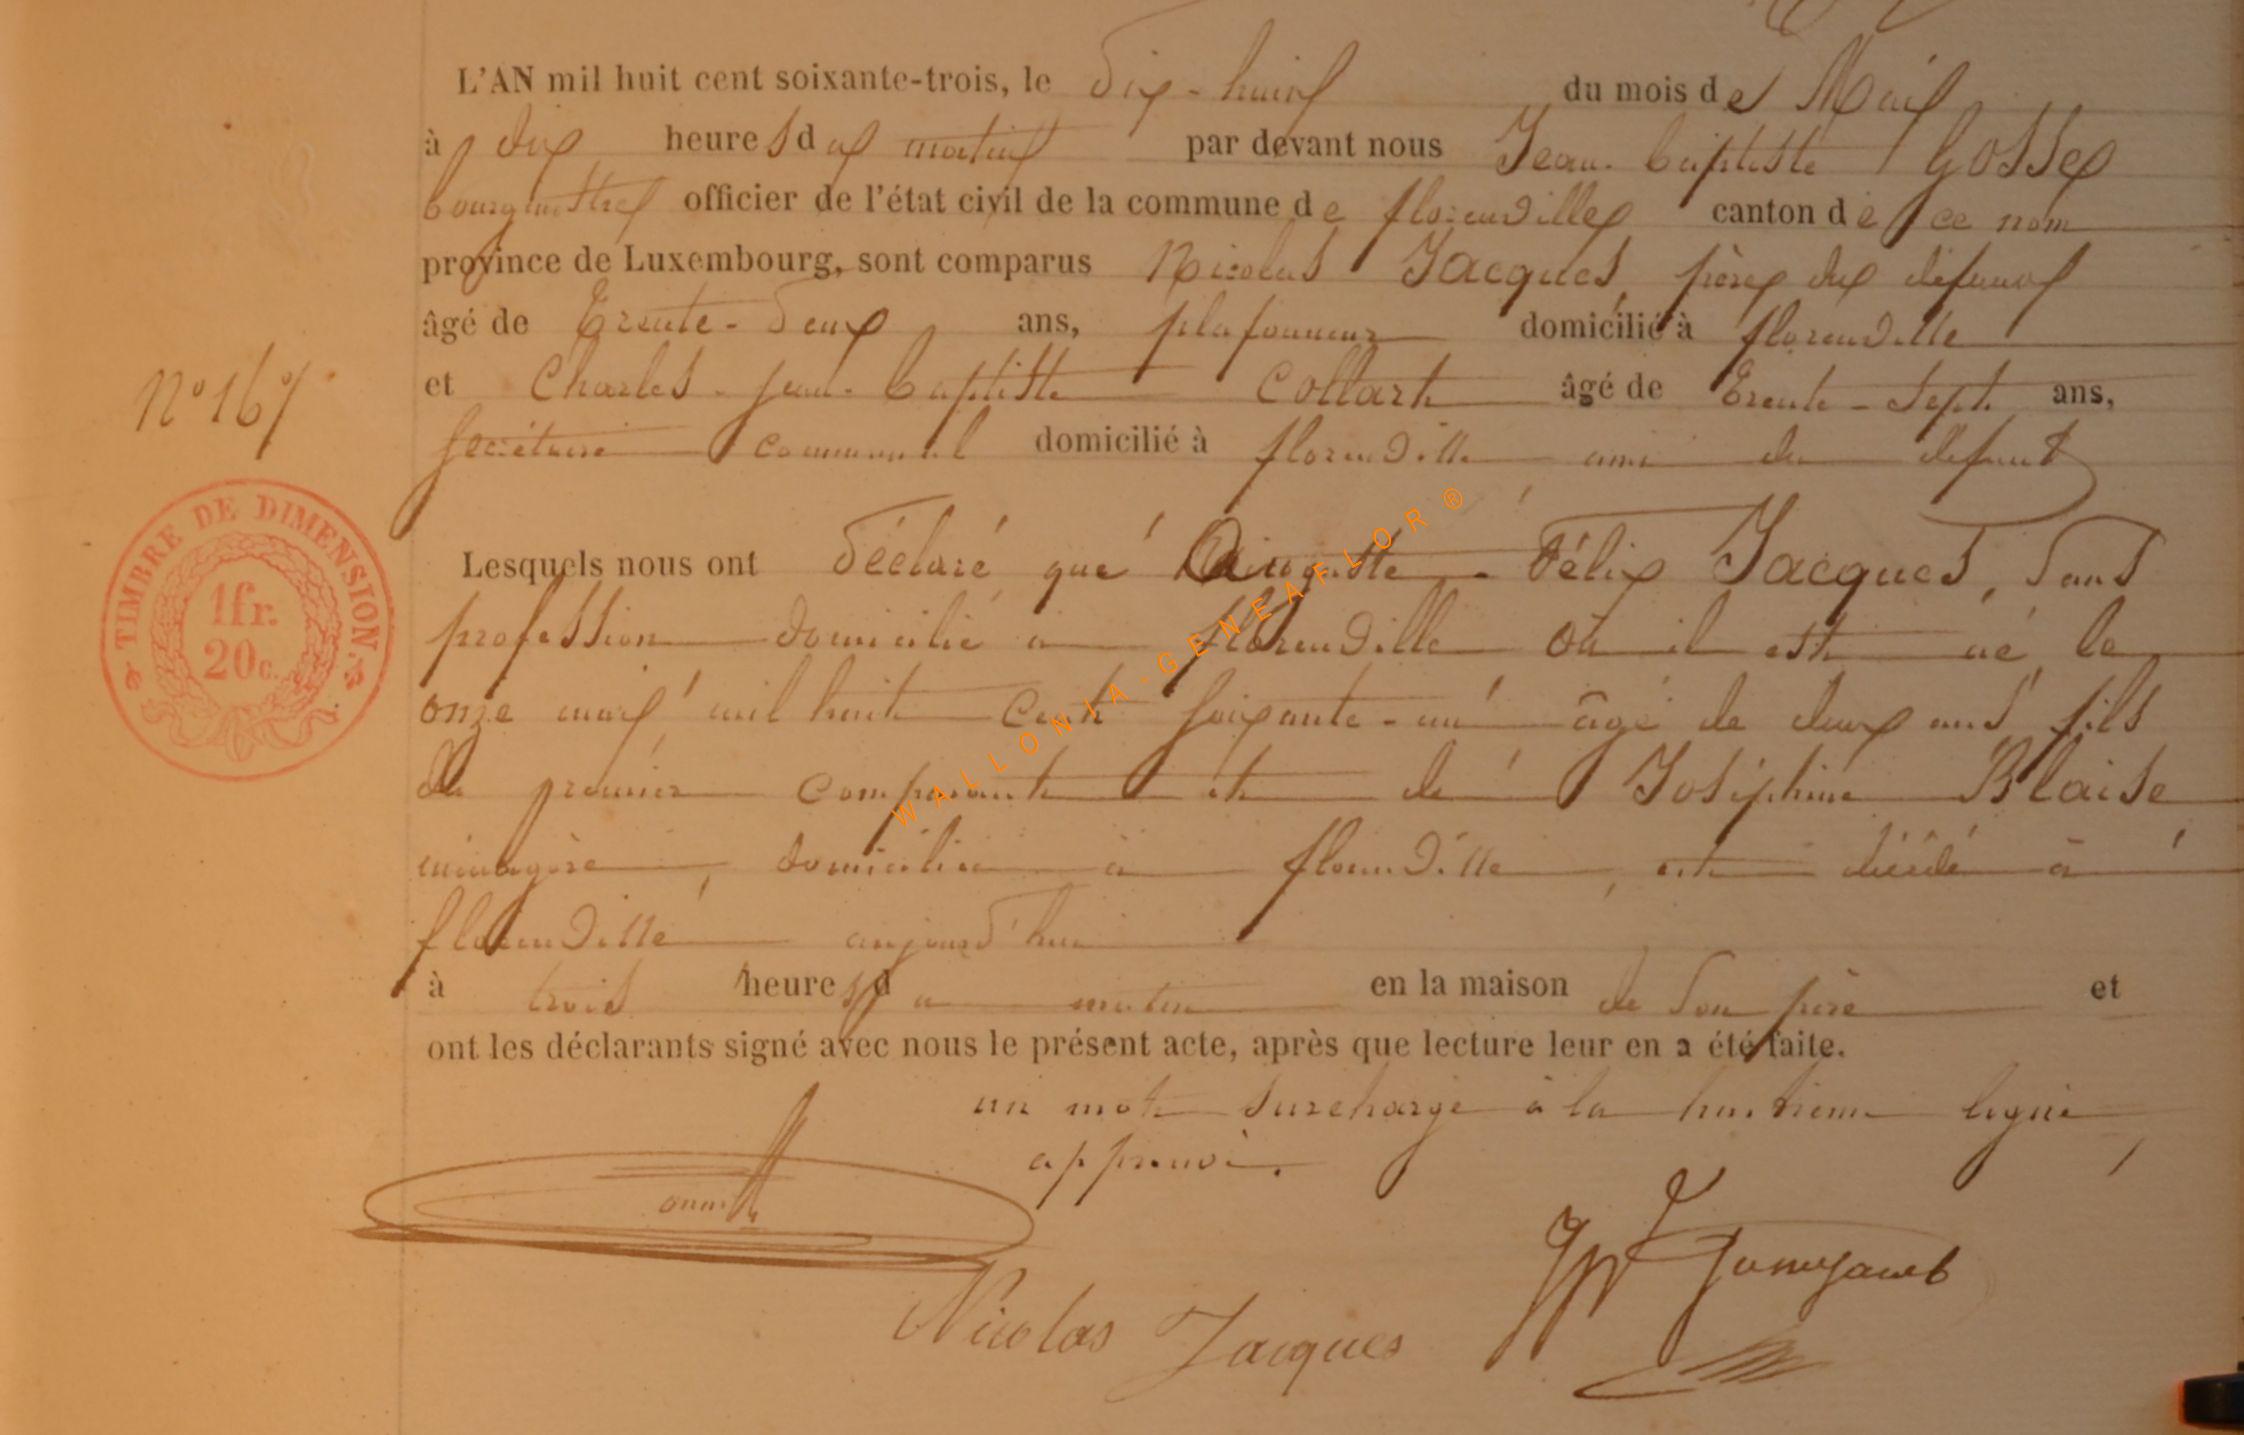 L'AN mil huit cent soixante-trois, le dix-huit du mois de Mai
à dix heures du matin par devant nous Jean-baptiste Gosse
bourgmestre officier de l'état civil de la commune de florenville canton de ce nom
province de Luxembourg, sont comparus Nicolas Jacques, père du défunt
âgé de Trente-deux ans, plafonneur domicilié à florenville
et Charles-jean-baptiste Collart âgé de Trente-sept ans,
secrétaire communal domicilié à florenville ami du defunt
N° 16
TIMBRE DE DIMENSION.
1fr.
20c.
Lesquels nous ont déclaré que Auguste-Félix Jacques, sans
profession domicilié à florenville où il est né le
onze mars mil huit cent soixante-un âgé de deux ans fils
du premier comparant et de Joséphine Blaise
ménagère, domiciliée à florenville, est décédé à
florenville aujourd'hui
à trois heures du matin en la maison de son père et
ont les déclarants signé avec nous le présent acte, après que lecture leur en a été faite.
un mot surchargé à la huitième ligne,
approuvé.
Nicolas Jacques
WALLONIA-GENEAFLOR®